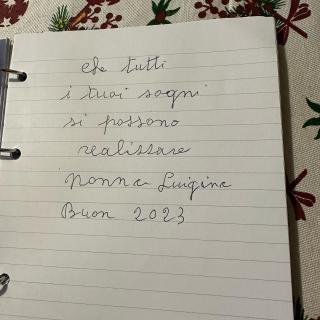 che tutti
i tuoi sogni
si possono
realizzare
nonna Luigina
Buon 2023